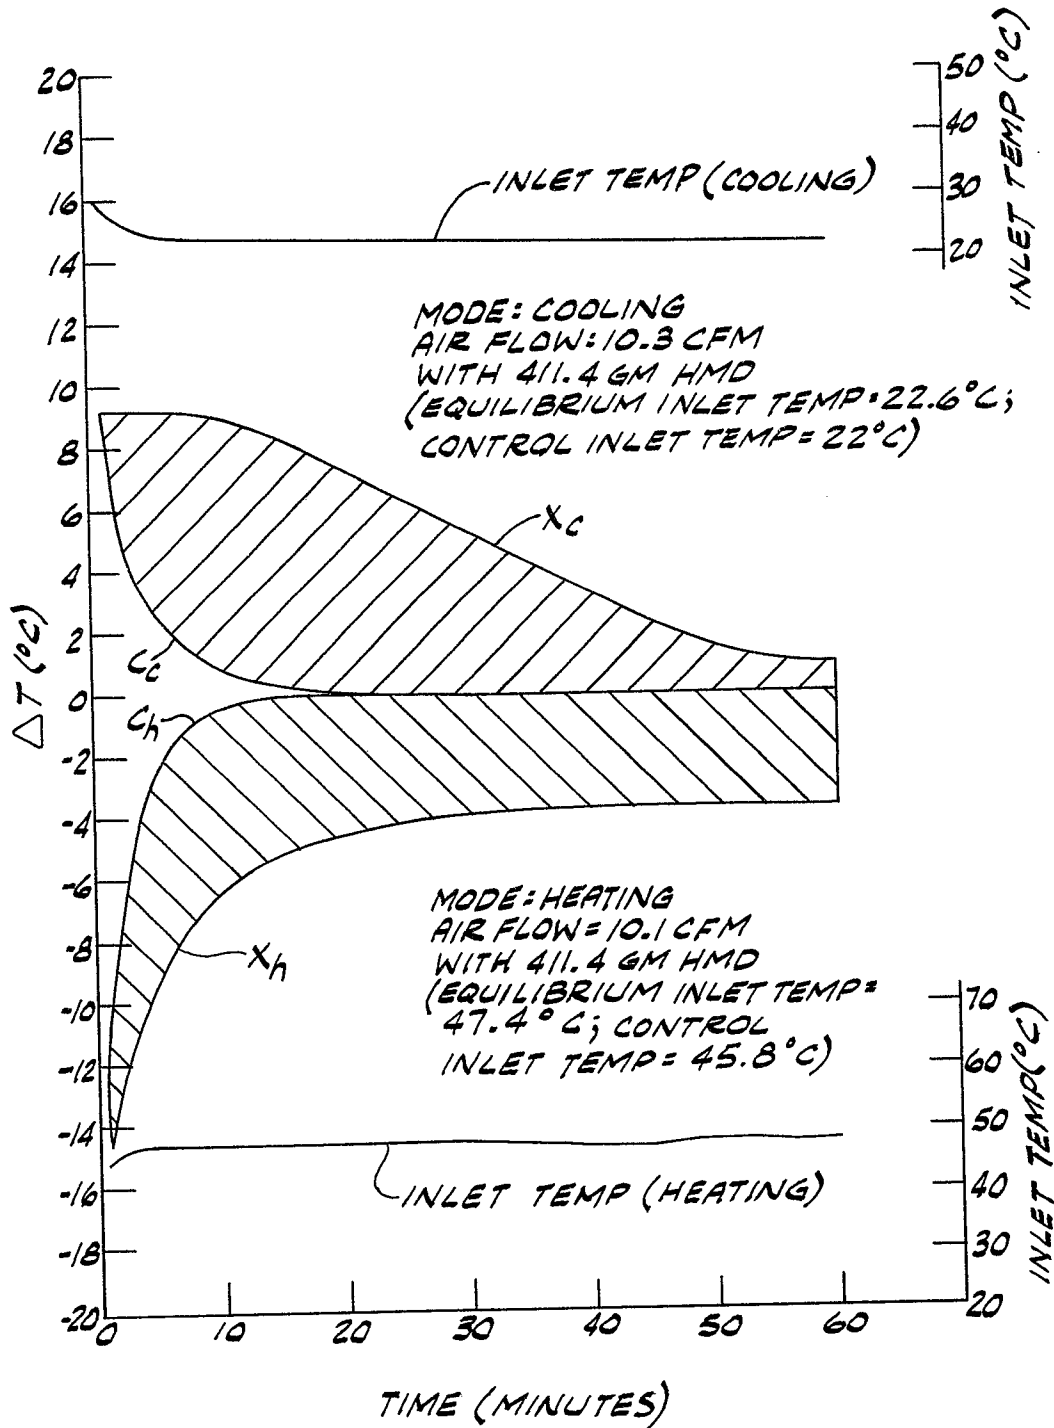 20
18
16
14
12
10
8
6
4
2
0
-2
-4
-6
-8
-10
-12
-14
-16
-18
-20
ΔT (°C)
50
40
30
20
INLET TEMP (°C)
INLET TEMP (COOLING)
MODE: COOLING
AIR FLOW: 10.3 CFM
WITH 411.4 GM HMD
(EQUILIBRIUM INLET TEMP = 22.6°C;
CONTROL INLET TEMP = 22°C)
Xc
Cc
Ch
Xh
MODE: HEATING
AIR FLOW = 10.1 CFM
WITH 411.4 GM HMD
(EQUILIBRIUM INLET TEMP =
47.4°C; CONTROL
INLET TEMP = 45.8°C)
INLET TEMP (HEATING)
70
60
50
40
30
20
INLET TEMP (°C)
0 10 20 30 40 50 60
TIME (MINUTES)